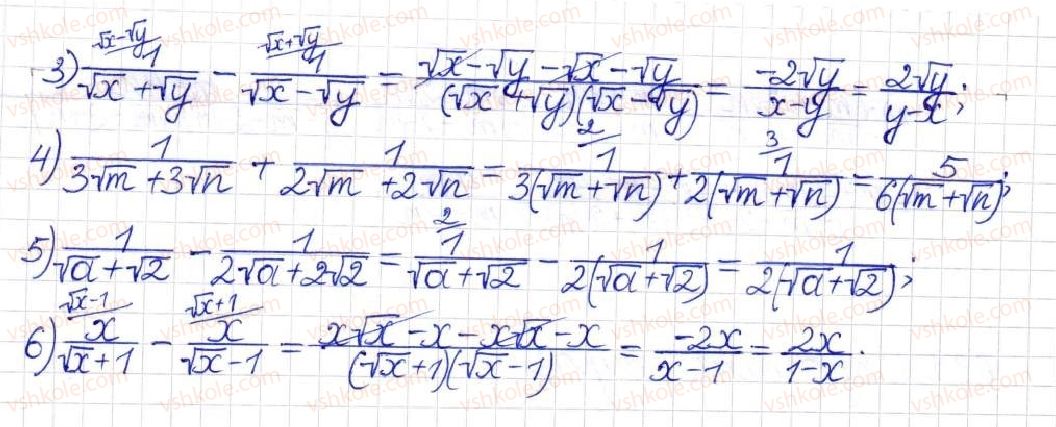 3) √x-√y/1/(√x+√y) - √x+√y/1/(√x-√y) = (√x-√y-√x-√y)/((√x+√y)(√x-√y)) = -2√y/(x-y) = 2√y/(y-x);
4) 1/(3√m+3√n) + 1/(2√m+2√n) = 2/1/(3(√m+√n)) + 3/1/(2(√m+√n)) = 5/(6(√m+√n));
5) 1/(√a+√2) - 1/(2√a+2√2) = 2/1/(√a+√2) - 1/(2(√a+√2)) = 1/(2(√a+√2));
6) √x-1/x/(√x+1) - √x+1/x/(√x-1) = (x√x-x-x√x-x)/((√x+1)(√x-1)) = -2x/(x-1) = 2x/(1-x).
vshkole.com